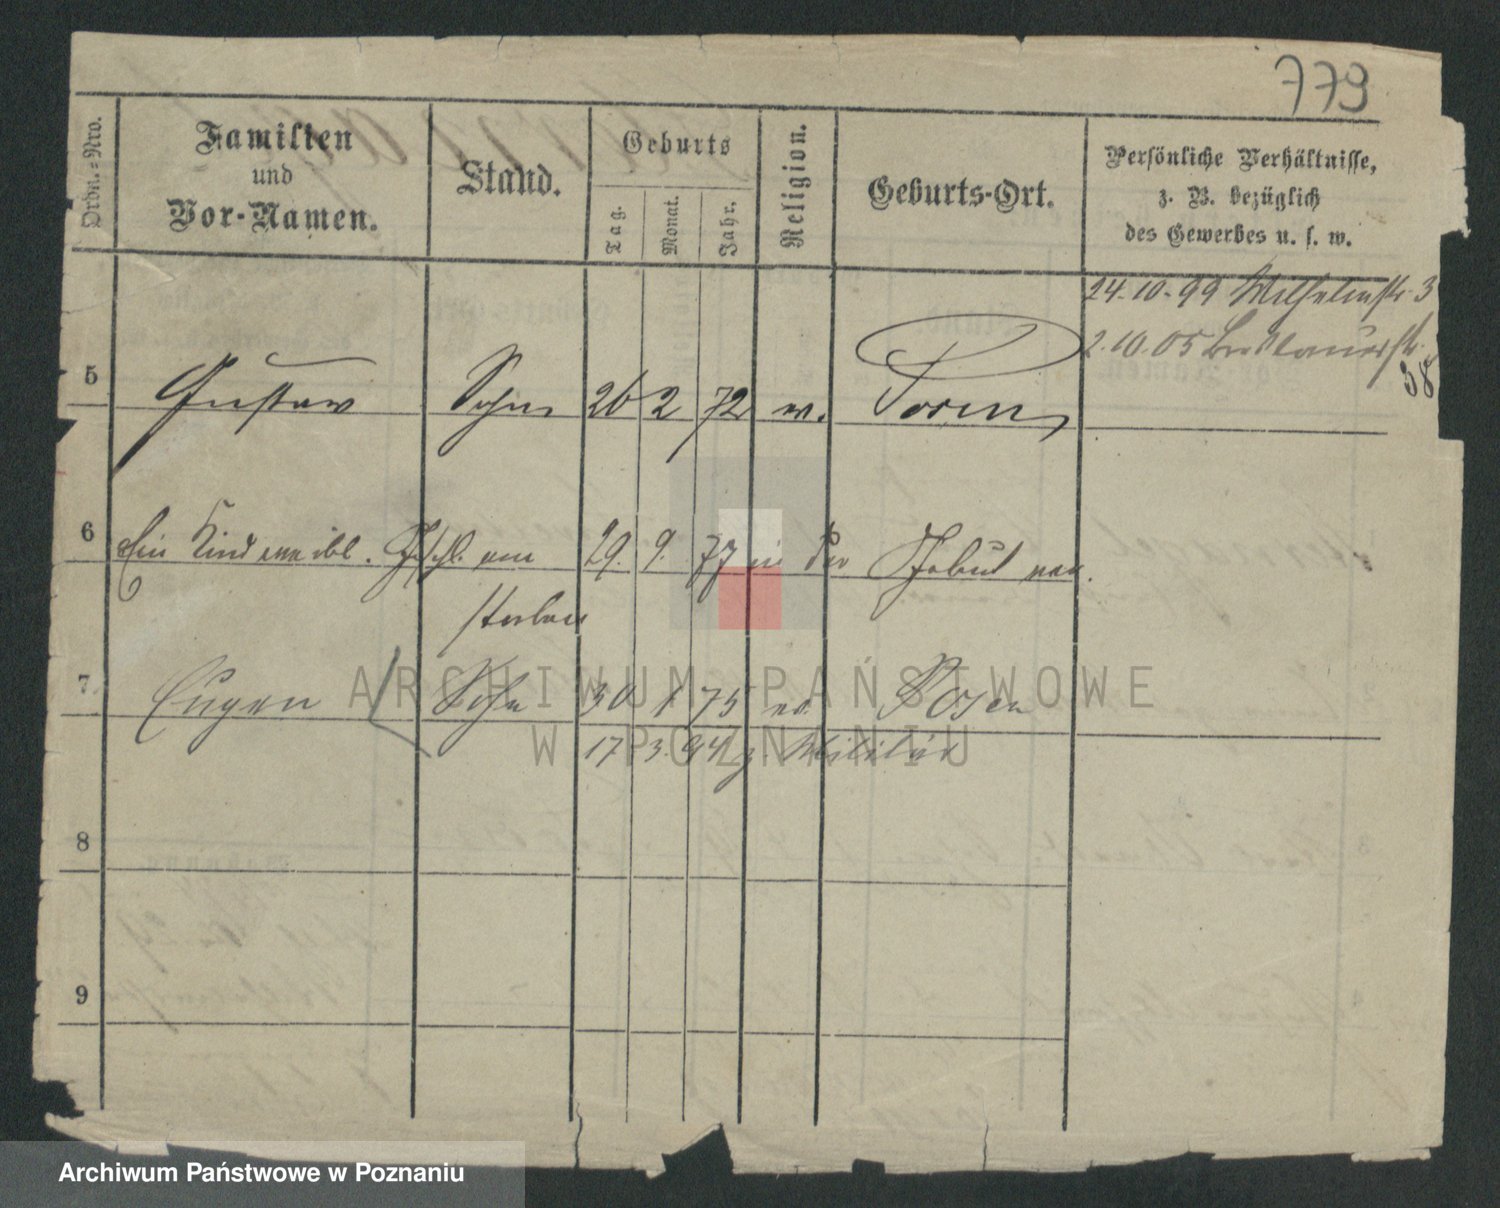 779
Ordn.=Nro.
Familien und Vor-Namen.
Stand.
Geburts
Tag.
Monat.
Jahr.
Religion.
Geburts-Ort.
Persönliche Verhältnisse,
z. B. bezüglich
des Gewerbes u. s. w.
24.10.99 Wilhelmstr. 3
2.10.05 Breslauerstr. 38
5 Gustav Sohn 26 2 72
6 Ein Kind weibl. Geschl. am 29. 9. 77 in der Geburt ver
storben
7. Eugen Sohn 30 1 75 ev. Posen
17 3. 94 z Militär
8
9
ARCHIWUM PAŃSTWOWE
W POZNANIU
Archiwum Państwowe w Poznaniu